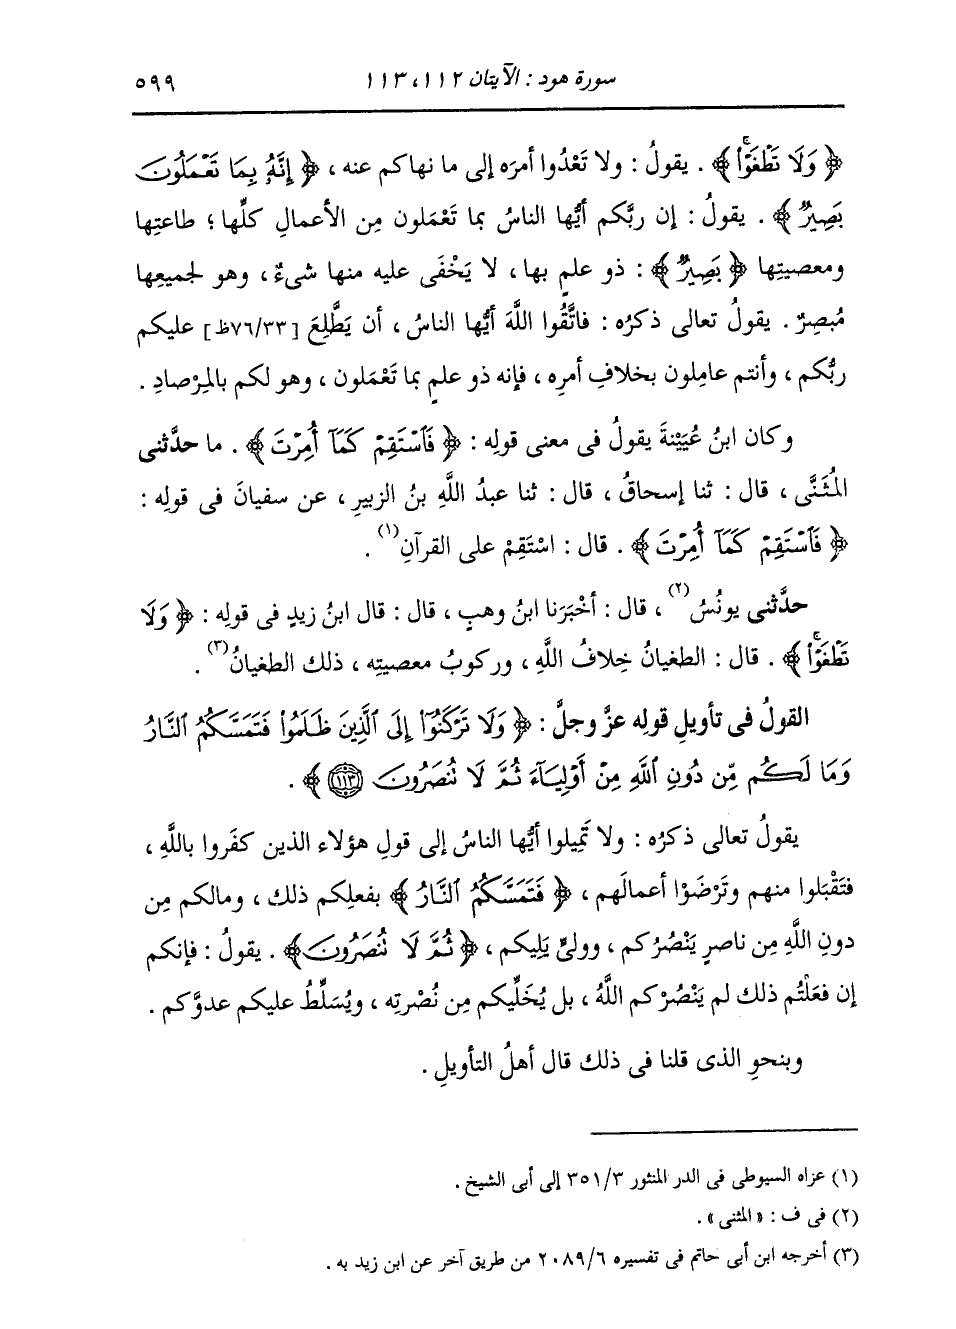 سورة هود : الآيتان ١١٢، ١١٣ ٥٩٩
﴿ وَلَا تَطْغَوْاْۚ ﴾ . يقولُ : ولا تَعْدُوا أمرَه إلى ما نهاكم عنه ، ﴿ إِنَّهُۥ بِمَا تَعْمَلُونَ
بَصِيرٌ ﴾ . يقولُ : إن ربَّكم أيُّها الناسُ بما تَعْمَلون مِن الأعمالِ كلِّها ؛ طاعتِها
ومعصيتِها ﴿ بَصِيرٌ ﴾ : ذو علمٍ بها ، لا يَخْفَى عليه منها شىءٌ ، وهو لجميعِها
مُبصِرٌ . يقولُ تعالى ذكرُه : فاتَّقُوا اللَّهَ أيُّها الناسُ ، أن يَطَّلِعَ [٧٦/٣٣ظ] عليكم
ربُّكم ، وأنتم عامِلون بخلافِ أمرِه ، فإنه ذو علمٍ بما تَعْمَلون ، وهو لكم بالمِرْصادِ .
وكان ابنُ عُيَيْنةَ يقولُ فى معنى قولِه : ﴿ فَٱسْتَقِمْ كَمَآ أُمِرْتَ ﴾ . ما حدَّثنى
المُثَنَّى ، قال : ثنا إسحاقُ ، قال : ثنا عبدُ اللَّهِ بنُ الزبيرِ ، عن سفيانَ فى قولِه :
﴿ فَٱسْتَقِمْ كَمَآ أُمِرْتَ ﴾ . قال : اسْتَقِمْ على القرآنِ(١) .
حدَّثنى يونُسُ(٢) ، قال : أخْبَرَنا ابنُ وهبٍ ، قال : قال ابنُ زيدٍ فى قولِه : ﴿ وَلَا
تَطْغَوْاْۚ ﴾ . قال : الطغيانُ خِلافُ اللَّهِ ، وركوبُ معصيتِه ، ذلك الطغيانُ(٣) .
القولُ فى تأويلِ قولِه عزَّ وجلَّ : ﴿ وَلَا تَرْكَنُوٓاْ إِلَى ٱلَّذِينَ ظَلَمُواْ فَتَمَسَّكُمُ ٱلنَّارُ
وَمَا لَكُم مِّن دُونِ ٱللَّهِ مِنْ أَوْلِيَآءَ ثُمَّ لَا نُنصَرُونَ ١١٣ ﴾ .
يقولُ تعالى ذكرُه : ولا تَمِيلوا أيُّها الناسُ إلى قولِ هؤلاء الذين كفَروا باللَّهِ ،
فتَقْبَلوا منهم وتَرْضَوْا أعمالَهم ، ﴿ فَتَمَسَّكُمُ ٱلنَّارُ ﴾ بفعلِكم ذلك ، ومالكم مِن
دونِ اللَّهِ مِن ناصرٍ يَنْصُرُكم ، وولىٍّ يَلِيكم ، ﴿ ثُمَّ لَا نُنصَرُونَ ﴾ . يقولُ : فإنكم
إن فعَلْتُم ذلك لم يَنْصُرْكم اللَّهُ ، بل يُخَلِّيكم مِن نُصْرتِه ، ويُسَلِّطُ عليكم عدوَّكم .
وبنحوِ الذى قلنا فى ذلك قال أهلُ التأويلِ .
(١) عزاه السيوطى فى الدر المنثور ٣٥١/٣ إلى أبى الشيخ .
(٢) فى ف : « المثنى » .
(٣) أخرجه ابن أبى حاتم فى تفسيره ٢٠٨٩/٦ من طريق آخر عن ابن زيد به .